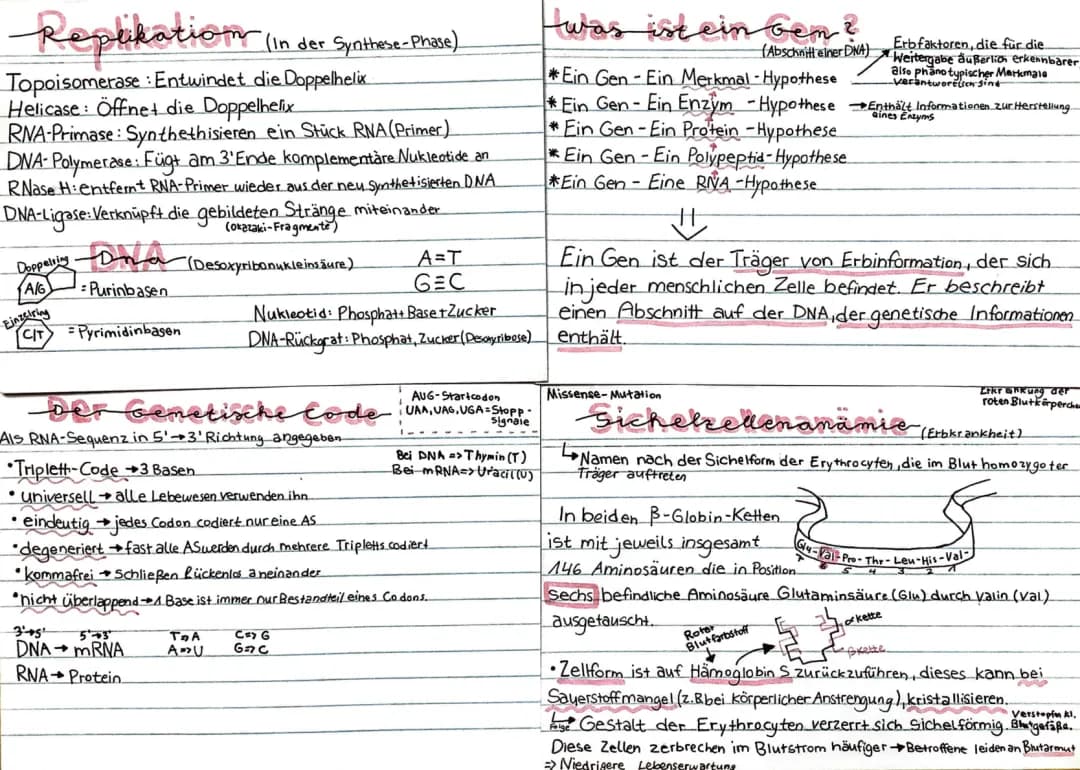 Replikation (In der Synthese-Phase)
Topoisomerase: Entwindet die Doppelhelix
Helicase: Öffnet die Doppelhelix
RNA-Primase: Synthethisieren ein Stück RNA (Primer)
DNA-Polymerase: Fügt am 3'Ende komplementäre Nukleotide an
RNase H: entfernt RNA-Primer wieder aus der neu synthetisierten DNA
DNA-Ligase: Verknüpft die gebildeten Stränge miteinander
(Okazaki-Fragmente)
DNA (Desoxyribonukleinsäure)
Doppelring
A/G = Purinbasen
Einzelring
C/T = Pyrimidinbasen
A=T
G≡C
Nukleotid: Phosphat+Base+Zucker
DNA-Rückgrat: Phosphat, Zucker (Desoxyribose)
Was ist ein Gen?
(Abschnitt einer DNA)
Erbfaktoren, die für die
Weitergabe äußerlich erkennbarer
also phänotypischer Merkmale
verantwortlich sind
* Ein Gen - Ein Merkmal - Hypothese
* Ein Gen - Ein Enzym - Hypothese → Enthält Informationen zur Herstellung
eines Enzyms
* Ein Gen - Ein Protein - Hypothese
* Ein Gen - Ein Polypeptid - Hypothese
* Ein Gen - Eine RNA - Hypothese
⇓
Ein Gen ist der Träger von Erbinformation, der sich
in jeder menschlichen Zelle befindet. Er beschreibt
einen Abschnitt auf der DNA, der genetische Informationen
enthält.
Der Genetische Code
AUG-Startcodon
UAA, UAG, UGA = Stopp-
Signale
Als RNA-Sequenz in 5'→3' Richtung angegeben
Bei DNA => Thymin (T)
Bei mRNA => Uracil (U)
• Triplett-Code → 3 Basen
• universell → alle Lebewesen verwenden ihn
• eindeutig → jedes Codon codiert nur eine AS
• degeneriert → fast alle AS werden durch mehrere Tripletts codiert
• kommafrei → Schließen lückenlos aneinander
• nicht überlappend → 1 Base ist immer nur Bestandteil eines Codons.
3'→5' 5'→3' T=>A C=>G
DNA → mRNA A=>U G=>C
RNA → Protein
Missense-Mutation
Erkrankung der
roten Blutkörperche
Sichelzellenanämie (Erbkrankheit)
↳ Namen nach der Sichelform der Erythrocyten, die im Blut homozygoter
Träger auftreten
In beiden β-Globin-Ketten
ist mit jeweils insgesamt
146 Aminosäuren die in Position
Glu-Val-Pro-Thr-Leu-His-Val-
7 6 5 4 3 2 1
sechs befindliche Aminosäure Glutaminsäure (Glu) durch Valin (Val)
ausgetauscht.
Roter
Blutfarbstoff
αkette
βkette
• Zellform ist auf Hämoglobin S zurückzuführen, dieses kann bei
Sauerstoffmangel (z.B bei körperlicher Anstrengung), kristallisieren
↳ Folge Gestalt der Erythrocyten verzerrt sich Sichelförmig.
Verstopfn kl.
Blutgefäße.
Diese Zellen zerbrechen im Blutstrom häufiger → Betroffene leiden an Blutarmut
=> Niedrigere Lebenserwartung